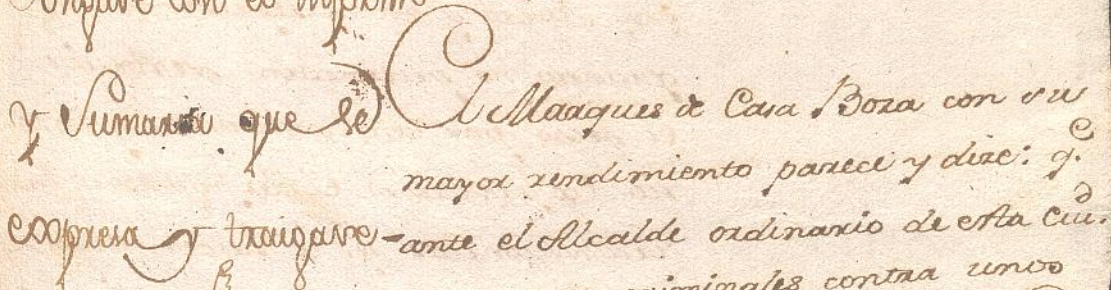 con el
y Sumaria que se
expresa y traigase
El Marques de Casa Boza con su
mayor rendimiento parece y dize: q.e
ante el Alcalde ordinario de esta Ciu.d
criminales contra unos